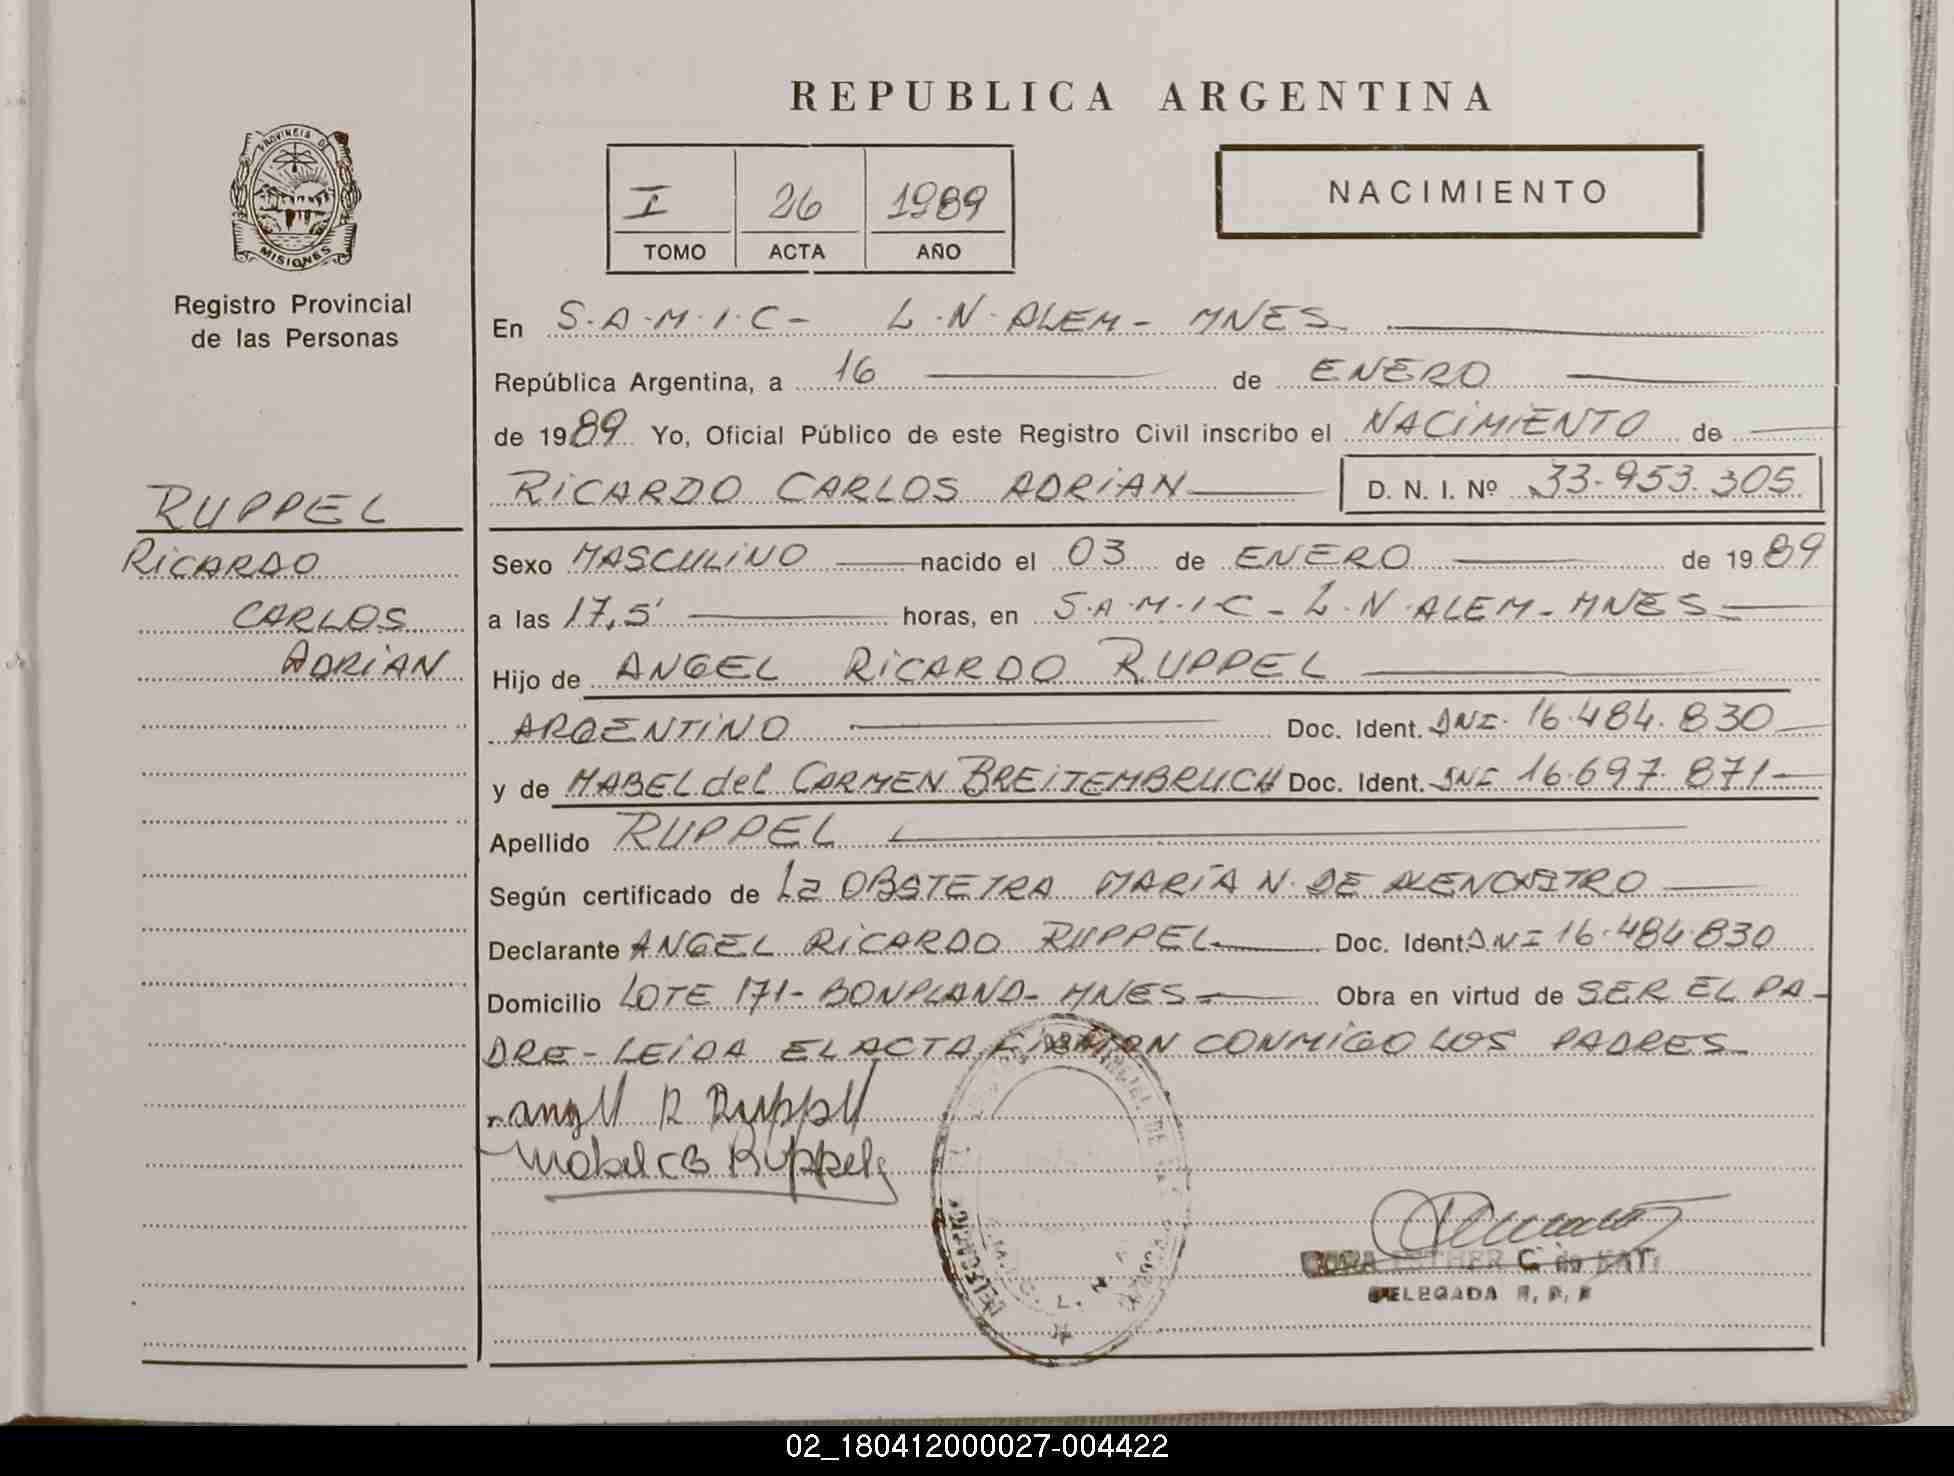 REPUBLICA ARGENTINA
PROVINCIA DE
MISIONES
I 26 1989
TOMO ACTA AÑO
NACIMIENTO
Registro Provincial
de las Personas
En S.A.M.I.C- L.N.ALEM- MNES
República Argentina, a 16 de ENERO
de 1989 Yo, Oficial Público de este Registro Civil inscribo el NACIMIENTO de
RICARDO CARLOS ADRIAN D. N. I. Nº 33.953.305
RUPPEL
RICARDO
CARLOS
ADRIAN
Sexo MASCULINO nacido el 03 de ENERO de 1989
a las 17,5' horas, en S.A.M.I.C- L.N.ALEM-MNES
Hijo de ANGEL RICARDO RUPPEL
ARGENTINO Doc. Ident. DNI. 16.484.830
y de MABEL del CARMEN BREITEMBRUCH Doc. Ident. DNI 16.697.871
Apellido RUPPEL
Según certificado de La OBSTETRA MARÍA N. DE
Declarante ANGEL RICARDO RUPPEL Doc. Ident DNI 16.484.830
Domicilio LOTE 171- BONPLAND- MNES Obra en virtud de SER EL PA-
DRE- LEIDA EL ACTA FIRMAN CONMIGO LOS PADRES
Angel R Ruppel
Mabel CB Ruppel
ESTHER C. de
DELEGADA R. P. P
02_180412000027-004422